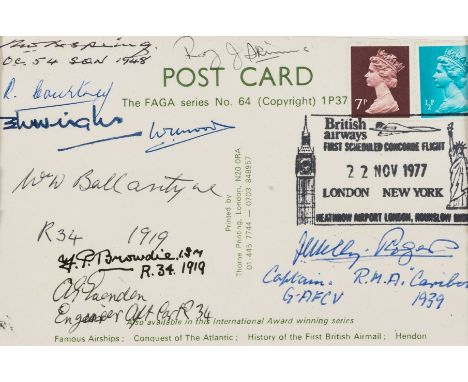 O.C. 54 SQN 1948
Roy J
POST CARD
The FAGA series No. 64 (Copyright) 1P37
R. Courtney
7P
½P
British airways
FIRST SCHEDULED CONCORDE FLIGHT
22 NOV 1977
LONDON NEW YORK
HEATHROW AIRPORT LONDON, HOUNSLOW
Wm Ballantyne
R34 1919
Printed by
Thorne Printing, London, N20 0RA
01-445 7744 — 0703 848957
R.34. 1919
Engineer Aft Car R34
Captain R.M.A. Caribou
G-AFCV 1939
Also available in this International Award winning series
Famous Airships; Conquest of The Atlantic; History of the First British Airmail; Hendon